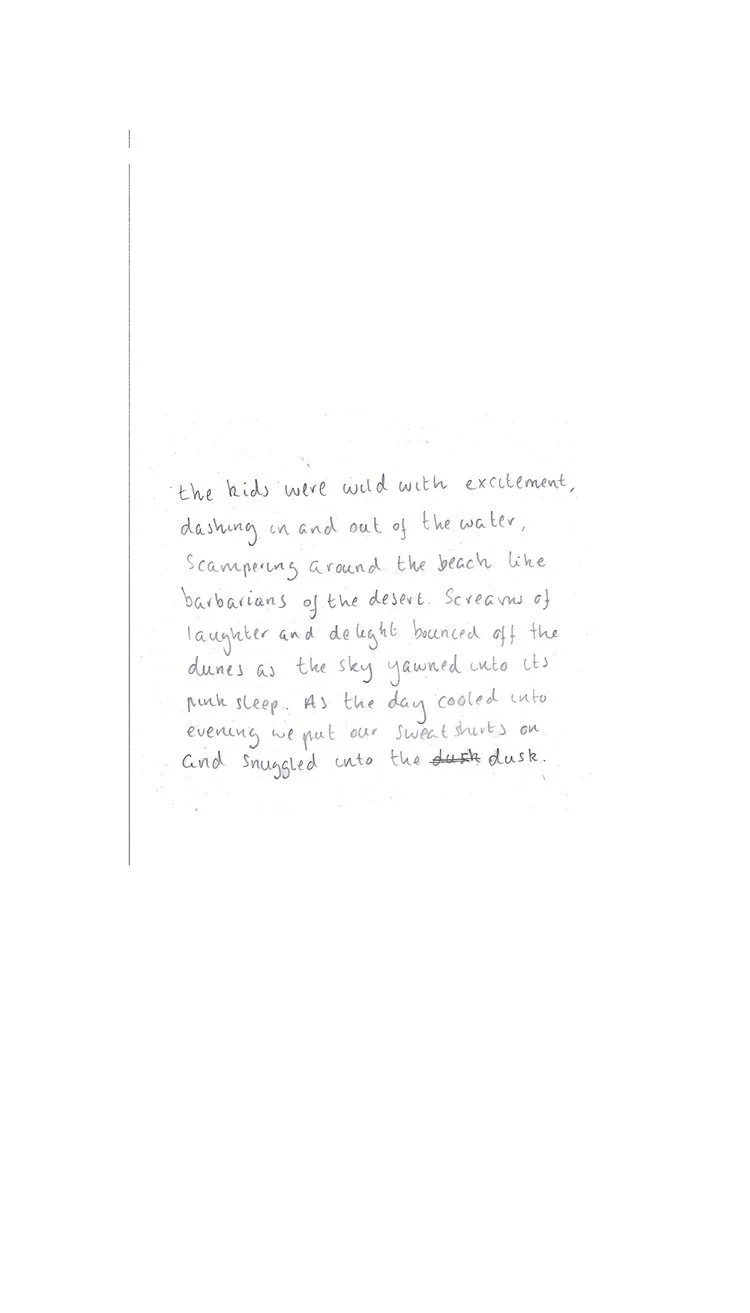 the kids were wild with excitement,
dashing in and out of the water,
Scampering around the beach like
barbarians of the desert. Screams of
laughter and delight bounced off the
dunes as the sky yawned into its
pink sleep. As the day cooled into
evening we put our sweatshirts on
and snuggled into the dusk dusk.